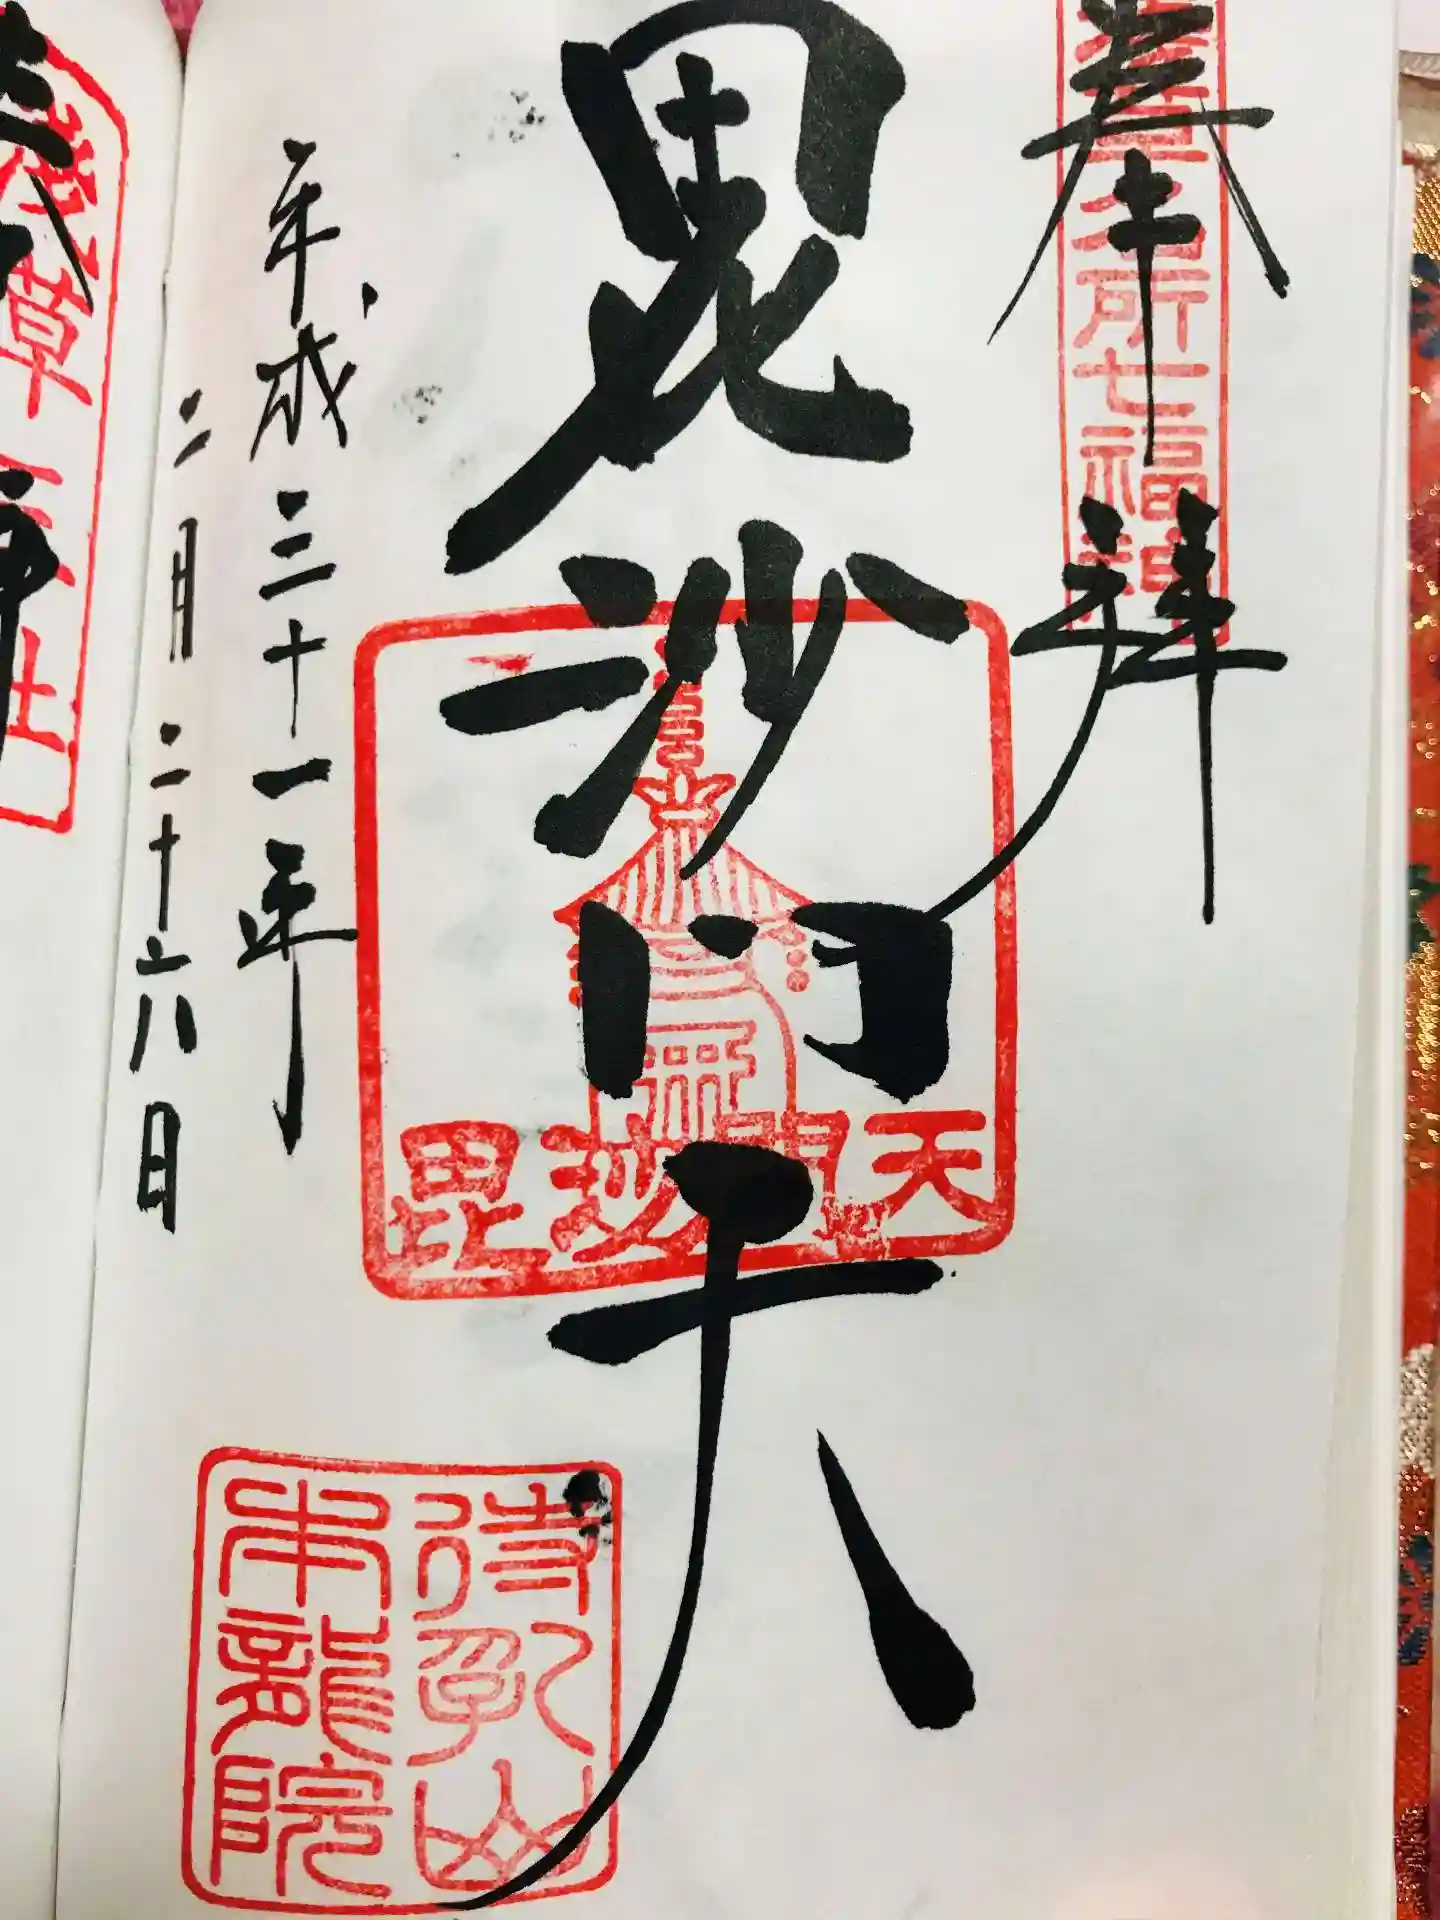 奉拝
名所七福神
毘沙門天
毘沙門天
平成三十一年
二月二十六日
待乳山
本龍院
浅草